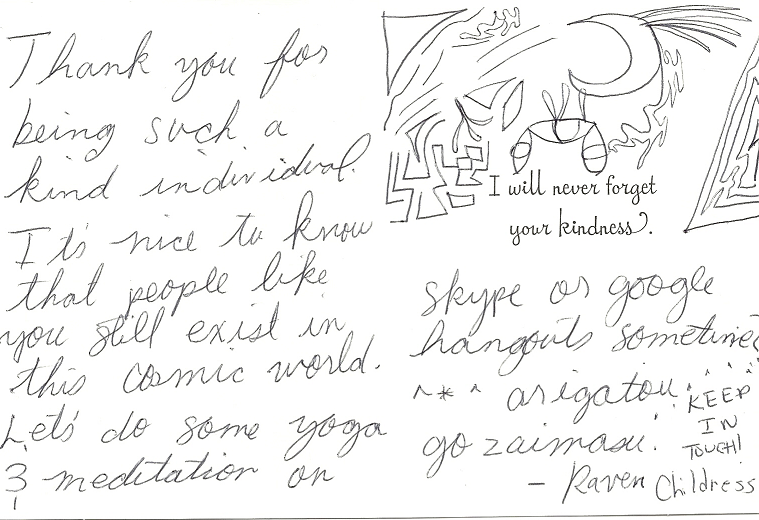 Thank you for
being such a
kind individual.
It's nice to know
that people like
you still exist in
this cosmic world.
Let's do some yoga
& meditation on
I will never forget
your kindness.
skype or google
hangouts sometime
^*^ arigatou
go zaimasu.
KEEP
IN
TOUCH!
- Raven Childress